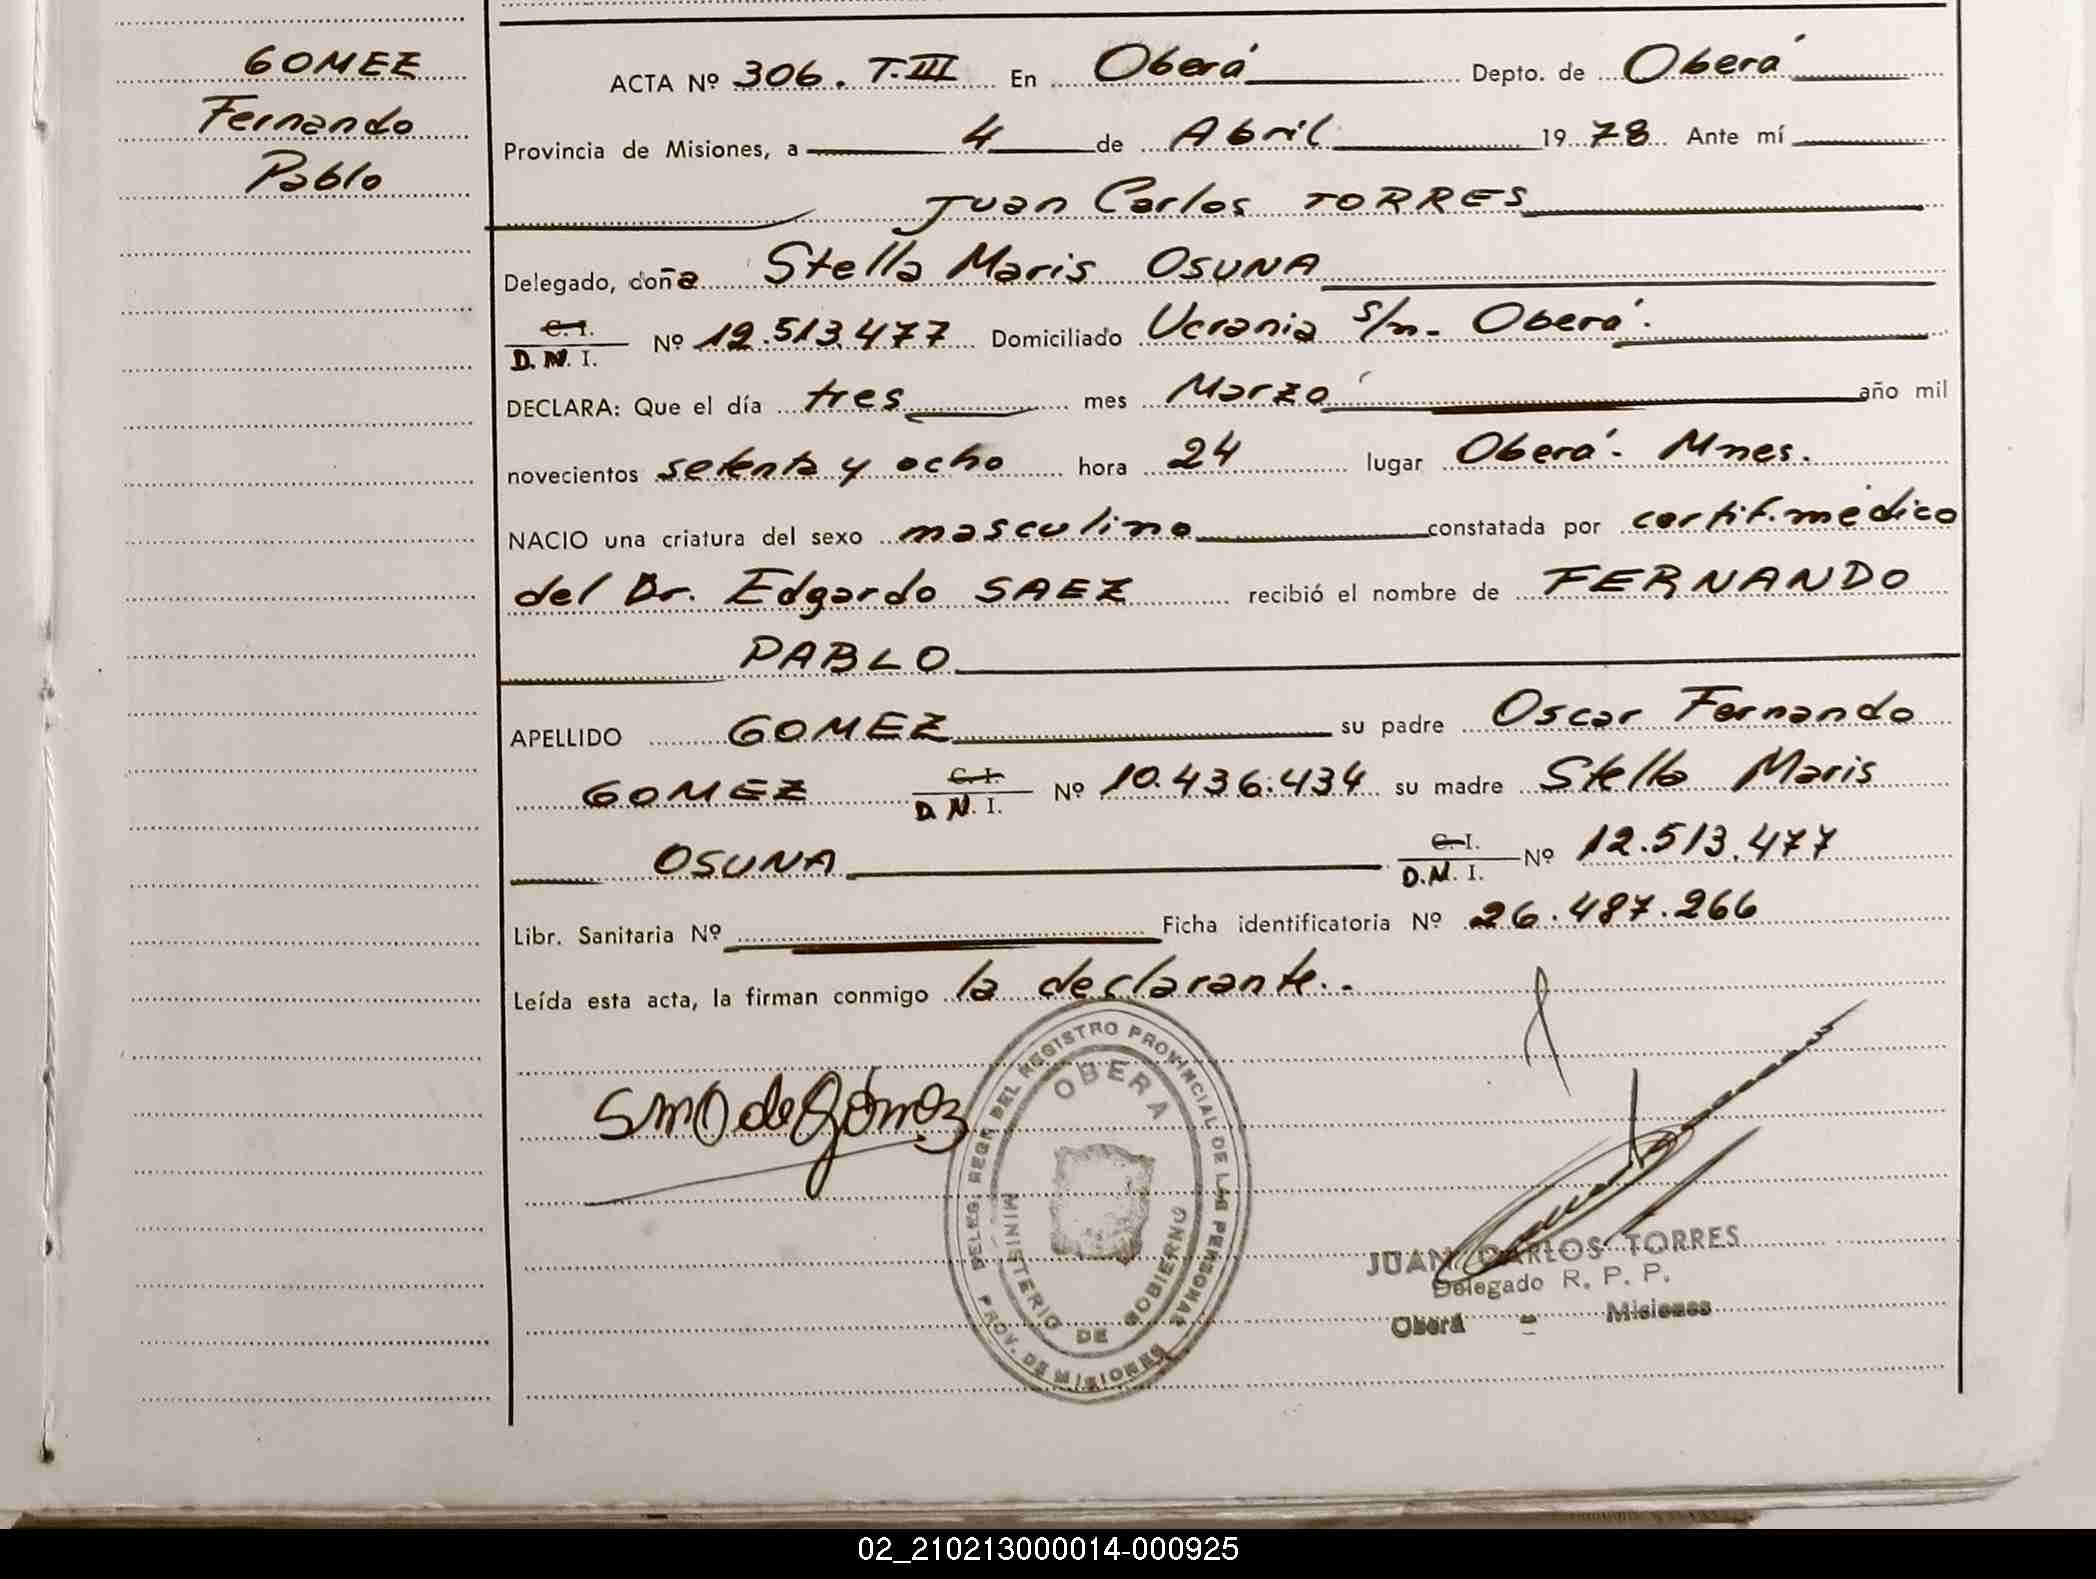 GOMEZ
Fernando
Pablo
ACTA Nº 306. T.III En Oberá Depto. de Oberá
Provincia de Misiones, a 4 de Abril 1978 Ante mí
Juan Carlos TORRES
Delegado, doña Stella Maris OSUNA
C. I.
D. N. I. Nº 12.513.477 Domiciliado Ucrania s/n - Oberá.
DECLARA: Que el día tres mes Marzo año mil
novecientos setenta y ocho hora 24 lugar Oberá. Mnes.
NACIO una criatura del sexo masculino constatada por certif. médico
del Dr. Edgardo SAEZ recibió el nombre de FERNANDO
PABLO
APELLIDO GOMEZ su padre Oscar Fernando
GOMEZ C. I. D. N. I. Nº 10.436.434 su madre Stella Maris
OSUNA C. I. D. N. I. Nº 12.513.477
Libr. Sanitaria Nº Ficha identificatoria Nº 26.487.266
Leída esta acta, la firman conmigo la declarante.-
SMO de Gómez
DELEG. REGN. DEL REGISTRO PROVINCIAL DE LAS PERSONAS
OBERA
MINISTERIO DE GOBIERNO
PROV. DE MISIONES
JUAN CARLOS TORRES
Delegado R. P. P.
Oberá - Misiones
02_210213000014-000925